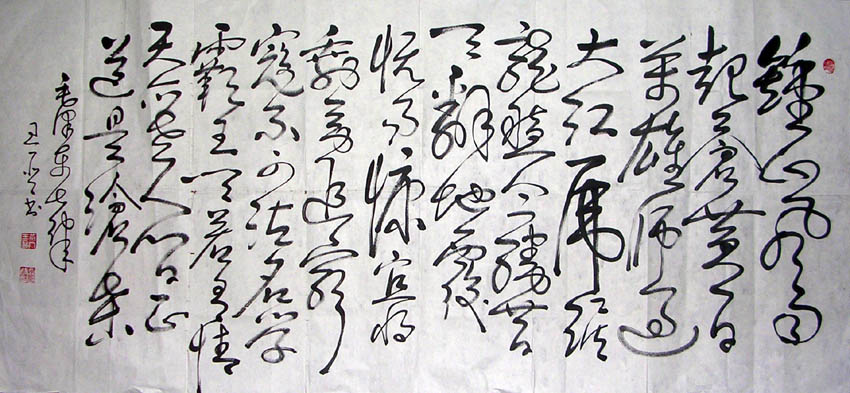 鍾山风雨
起蒼黄百
萬雄师过
大江虎踞
龍盤今勝昔
天翻地覆
慨而慷宜將
剩勇追窮
寇不可沽名学
霸王天若有情
天亦老人间正
道是滄桑
毛泽东七律
王书